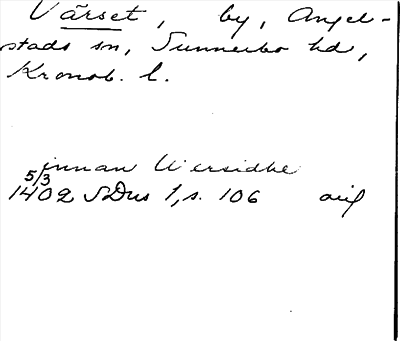 Värset, by, Angel-
stads sn, Sunnerbo hd,
Kronob. l.
innan Wersidhe
5/3
1402 SDns 1, s. 106 avig